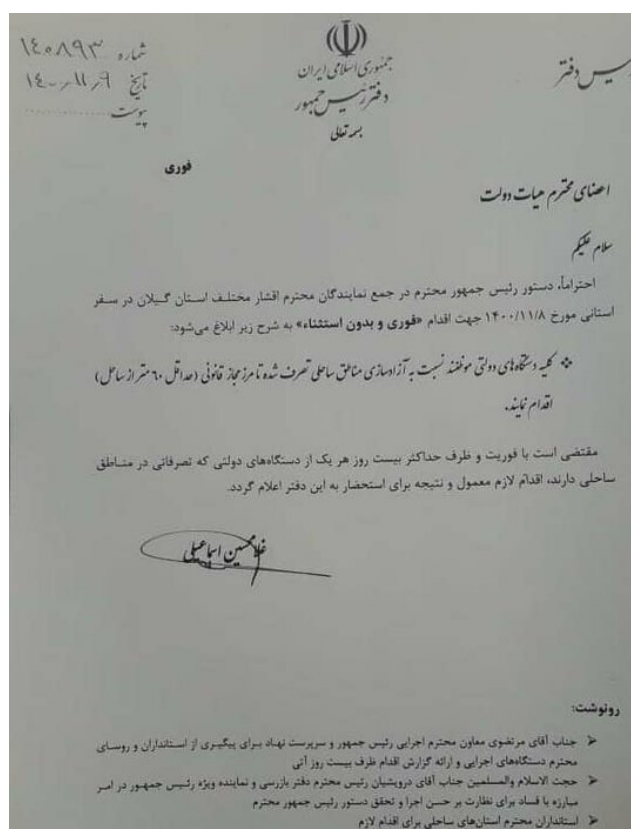 شماره ۱۴۰۸۹۳
تاریخ ۱۴۰۰/۱۱/۹
پیوست
جمهوری اسلامی ایران
دفتر رئیس جمهور
بسمه تعالی
یس دفتر
فوری
اعضای محترم هیات دولت
سلام علیکم
احتراماً، دستور رئیس جمهور محترم در جمع نمایندگان محترم اقشار مختلف استان گیلان در سفر
استانی مورخ ۱۴۰۰/۱۱/۸ جهت اقدام «فوری و بدون استثناء» به شرح زیر ابلاغ می‌شود:
❖ کلیه دستگاه‌های دولتی موظفند نسبت به آزادسازی مناطق ساحلی تصرف شده تا مرز مجاز قانونی (حداقل ۶۰ متر از ساحل)
اقدام نمایند.
مقتضی است با فوریت و ظرف حداکثر بیست روز هر یک از دستگاه‌های دولتی که تصرفاتی در مناطق
ساحلی دارند، اقدام لازم معمول و نتیجه برای استحضار به این دفتر اعلام گردد.
غلامحسین اسماعیلی
رونوشت:
➢ جناب آقای مرتضوی معاون محترم اجرایی رئیس جمهور و سرپرست نهاد برای پیگیری از استانداران و روسای
محترم دستگاه‌های اجرایی و ارائه گزارش اقدام ظرف بیست روز آتی
➢ حجت الاسلام والمسلمین جناب آقای درویشیان رئیس محترم دفتر بازرسی و نماینده ویژه رئیس جمهور در امر
مبارزه با فساد برای نظارت بر حسن اجرا و تحقق دستور رئیس جمهور محترم
➢ استانداران محترم استان‌های ساحلی برای اقدام لازم